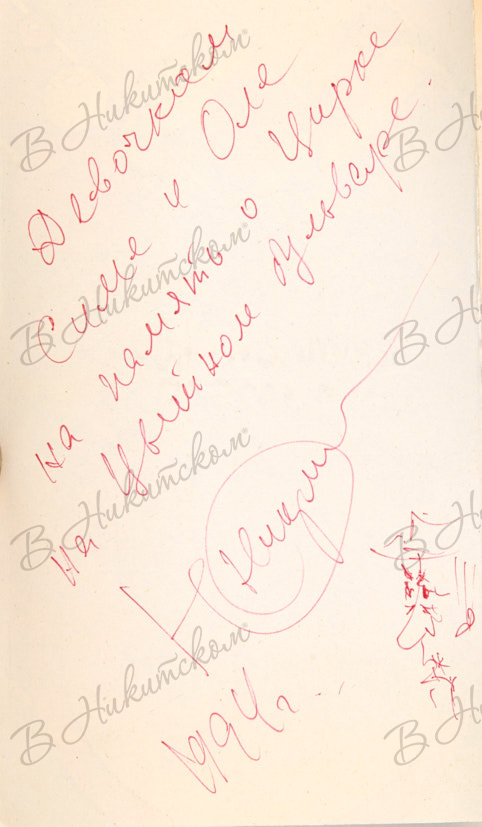 Девочкам
Симе и Оле
на память о Цирке
на Цветном бульваре.
Ю Никулин
1994 г.
В Никитском
В Никитском
В Никитском
В Никитском
В Никитском
В Ник
В Ник
В Ник
В Ник